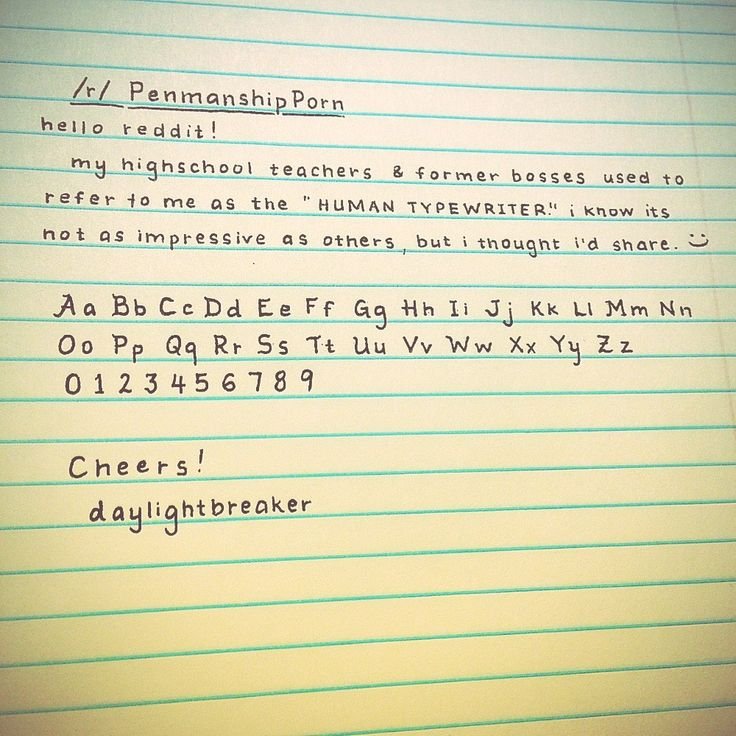 /r/ PenmanshipPorn
hello reddit!
my highschool teachers & former bosses used to
refer to me as the "HUMAN TYPEWRITER." i know its
not as impressive as others, but i thought i'd share. :)
Aa Bb Cc Dd Ee Ff Gg Hh Ii Jj Kk Ll Mm Nn
Oo Pp Qq Rr Ss Tt Uu Vv Ww Xx Yy Zz
0 1 2 3 4 5 6 7 8 9
Cheers!
daylightbreaker